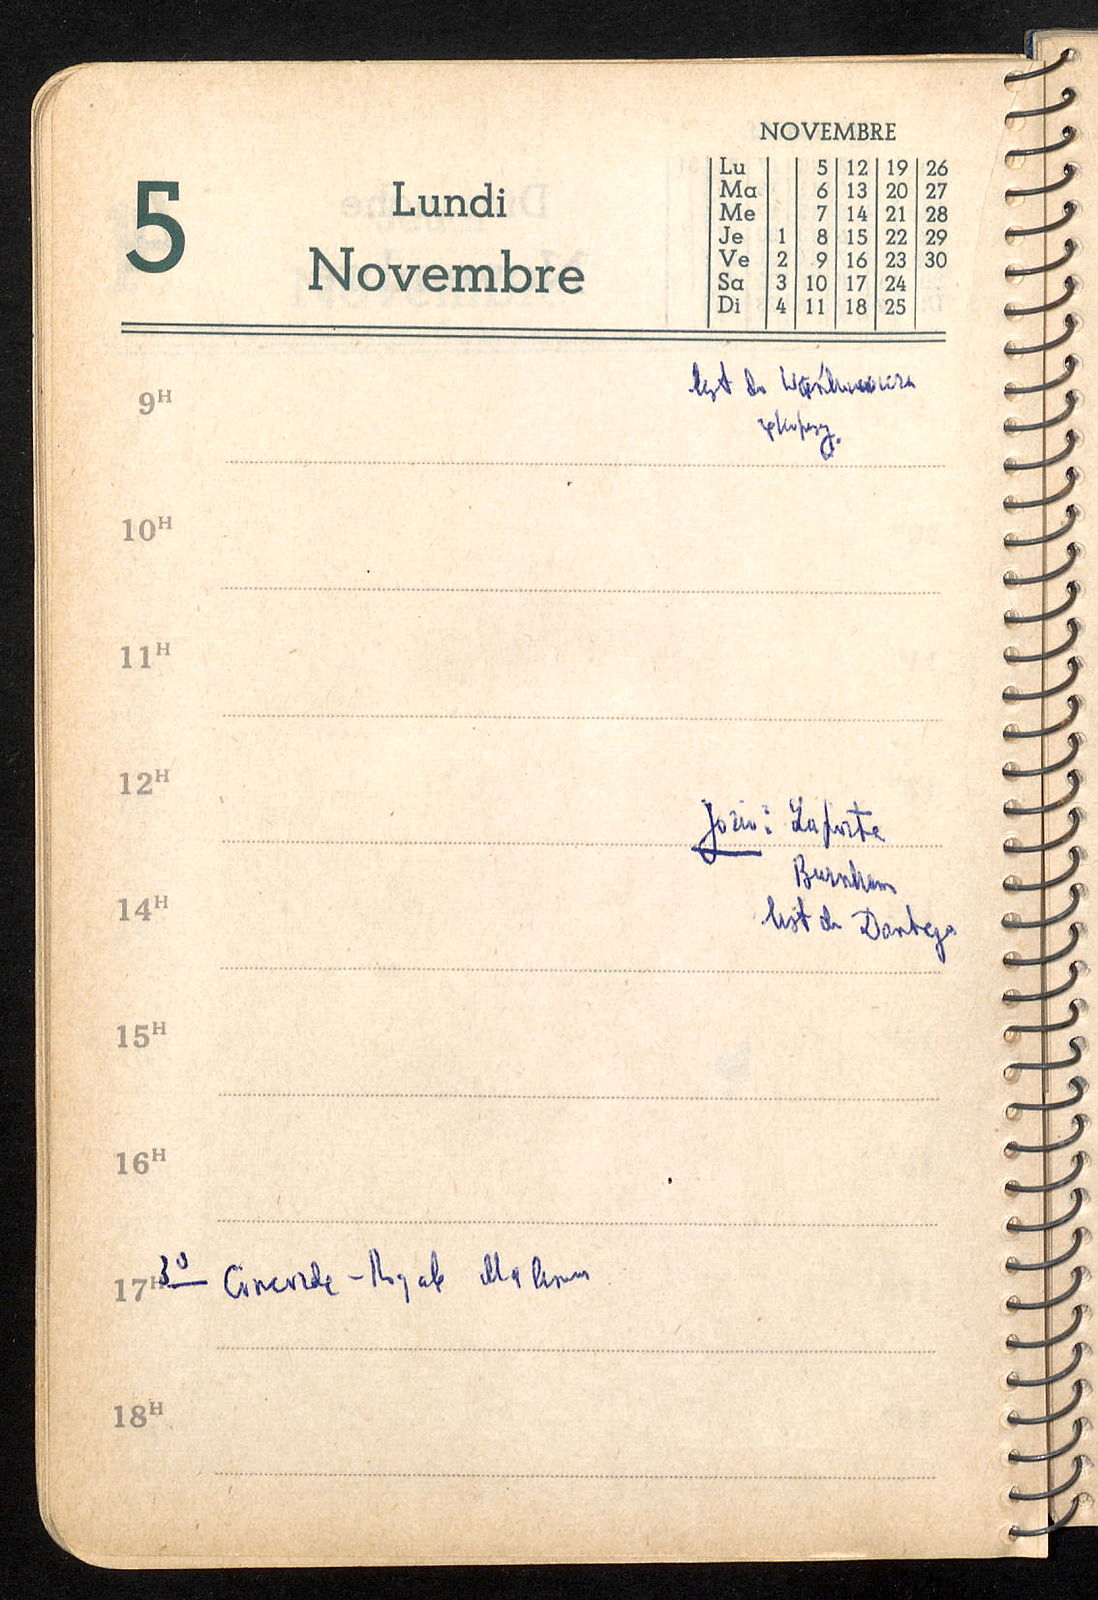 5
Lundi
Novembre
NOVEMBRE
Lu 5 12 19 26
Ma 6 13 20 27
Me 7 14 21 28
Je 1 8 15 22 29
Ve 2 9 16 23 30
Sa 3 10 17 24
Di 4 11 18 25
9H
list do
10H
11H
12H
Józio: Laporte
Burnham
14H
list do
15H
16H
17H 3⁰ Concorde - Royale
18H